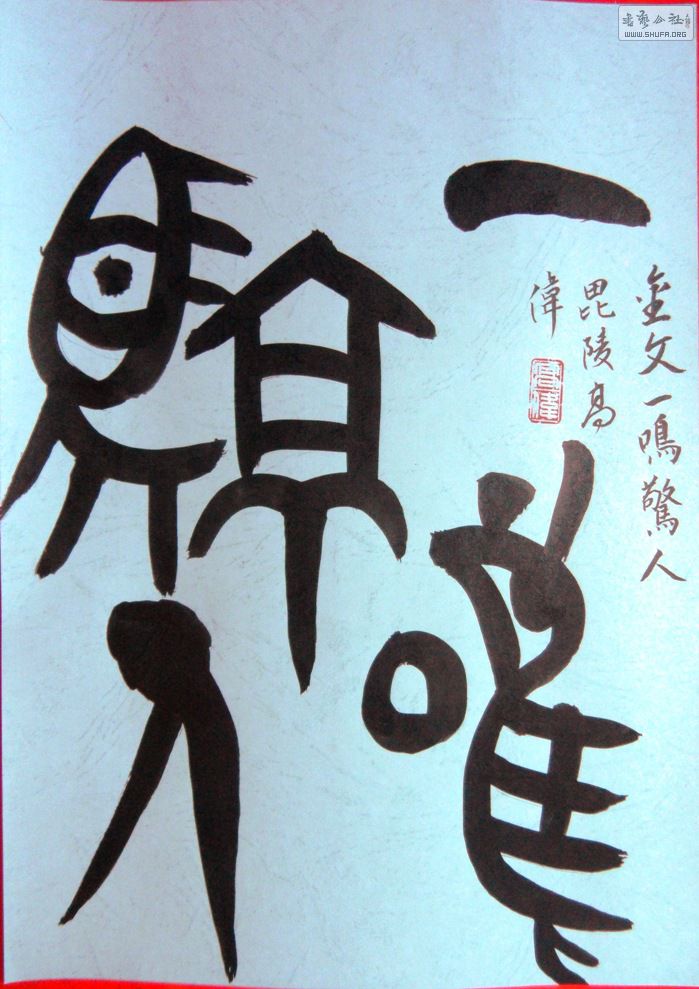 一鳴
驚人
金文一鳴驚人
毘陵高
偉
高偉
書藝公社
WWW.SHUFA.ORG